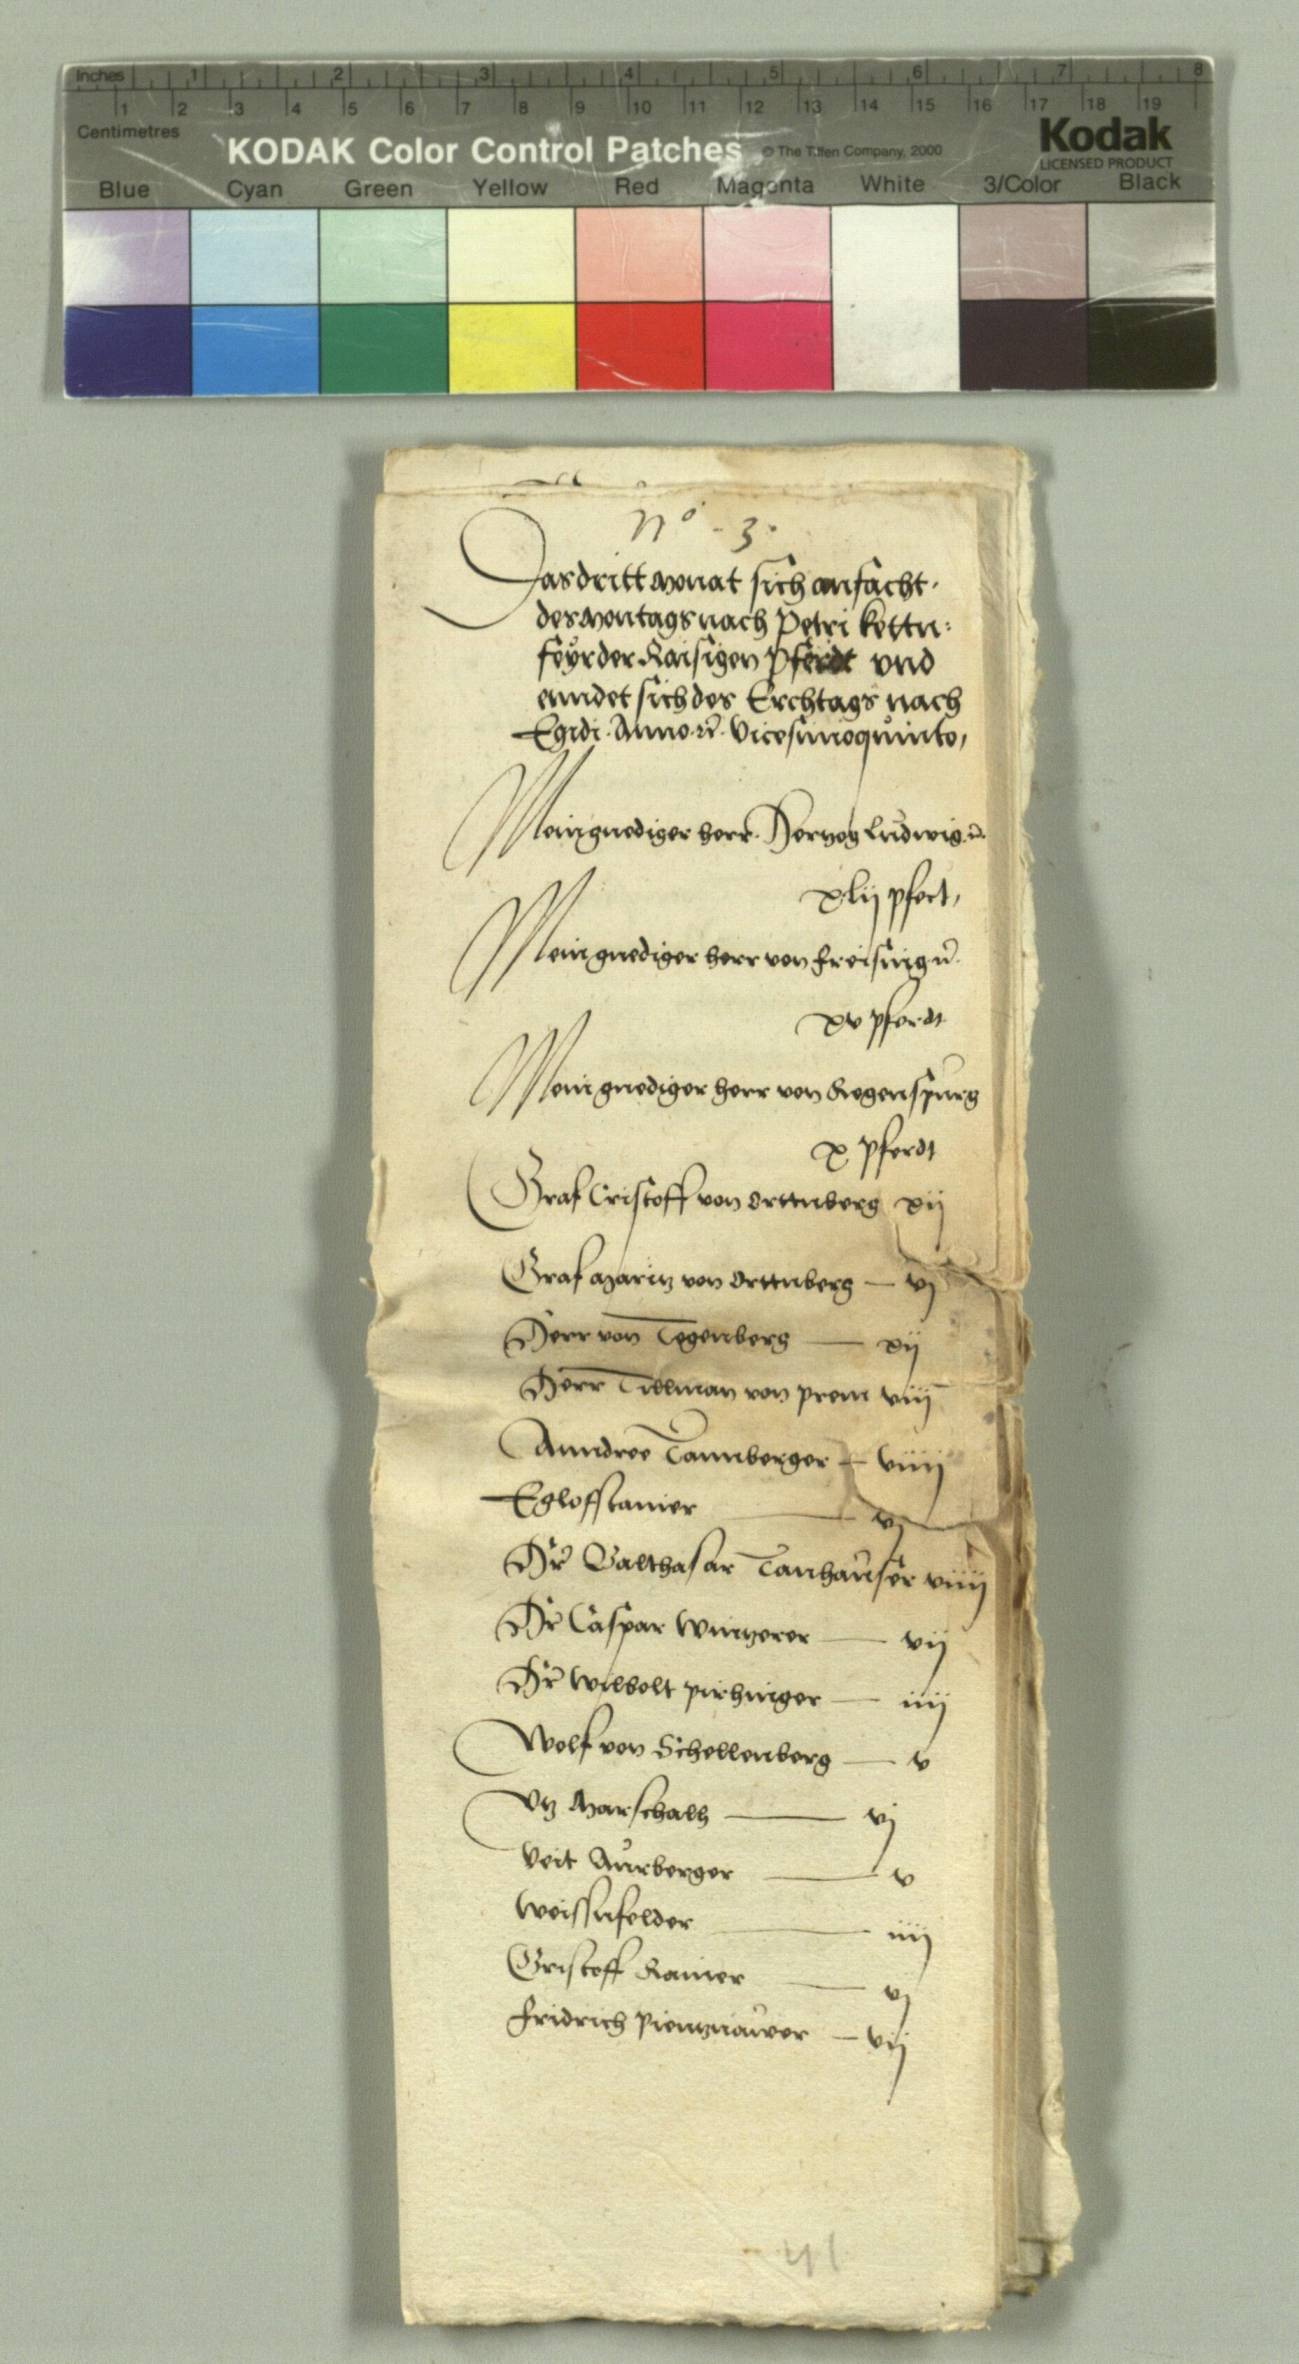 Inches 1 2 3 4 5 6 7 8
1 2 3 4 5 6 7 8 9 10 11 12 13 14 15 16 17 18 19
Centimetres
KODAK Color Control Patches © The Tiffen Company, 2000 Kodak
LICENSED PRODUCT
Blue Cyan Green Yellow Red Magenta White 3/Color Black
No - 3 ·
Das dritt Monat sich anfacht ·
des Montags nach Petri kettn :
feyr der Raisigen Pferdt vnd
enndet sich des Erchtags nach
Egidi · Anno · Vicesimoquinto,
Mein gnediger herr · Hertzog Ludwig
xlij pfert,
Mein gnediger herr von freising
xv pferdt
Mein gnediger herr von Regenspurg
x pferdt
Graf Cristoff von Orttnberg xij
Graf Moritz von Orttnberg — vj
Herr von Degenberg — xij
Herr Tillman von prem viij
Anndree Tannberger — viiij
Eglofstainer — vj
Hr Balthasar Tanhauser viiij
Hr Caspar Wintzerer — vij
Hr Wilbolt pirhinger — iiij
Wolf von Schellenberg — v
Vtz Marschalh — vj
Veit Aurberger — v
Weissnfelder — iiij
Cristoff Rainer — vj
Fridrich Pientznawer — vij
41